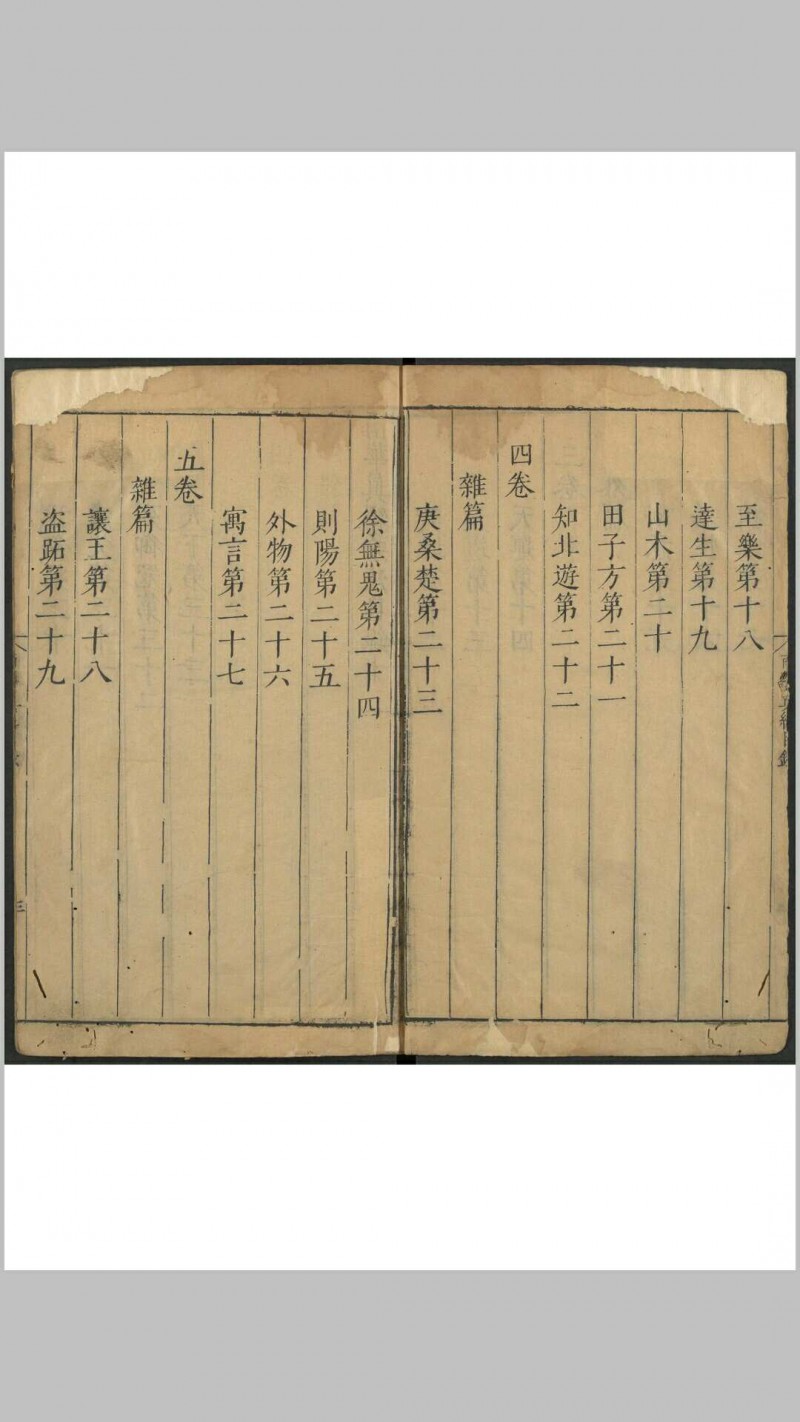 至樂第十八
達生第十九
山木第二十
田子方第二十一
知北遊第二十二
四卷
雜篇
庚桑楚第二十三
徐無鬼第二十四
則陽第二十五
外物第二十六
寓言第二十七
五卷
雜篇
讓王第二十八
盗跖第二十九
三